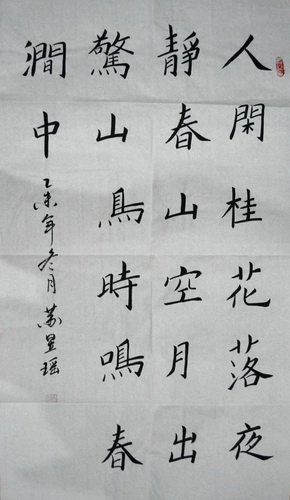 人閑桂花落夜
靜春山空月出
驚山鳥時鳴春
澗中
乙未年冬月